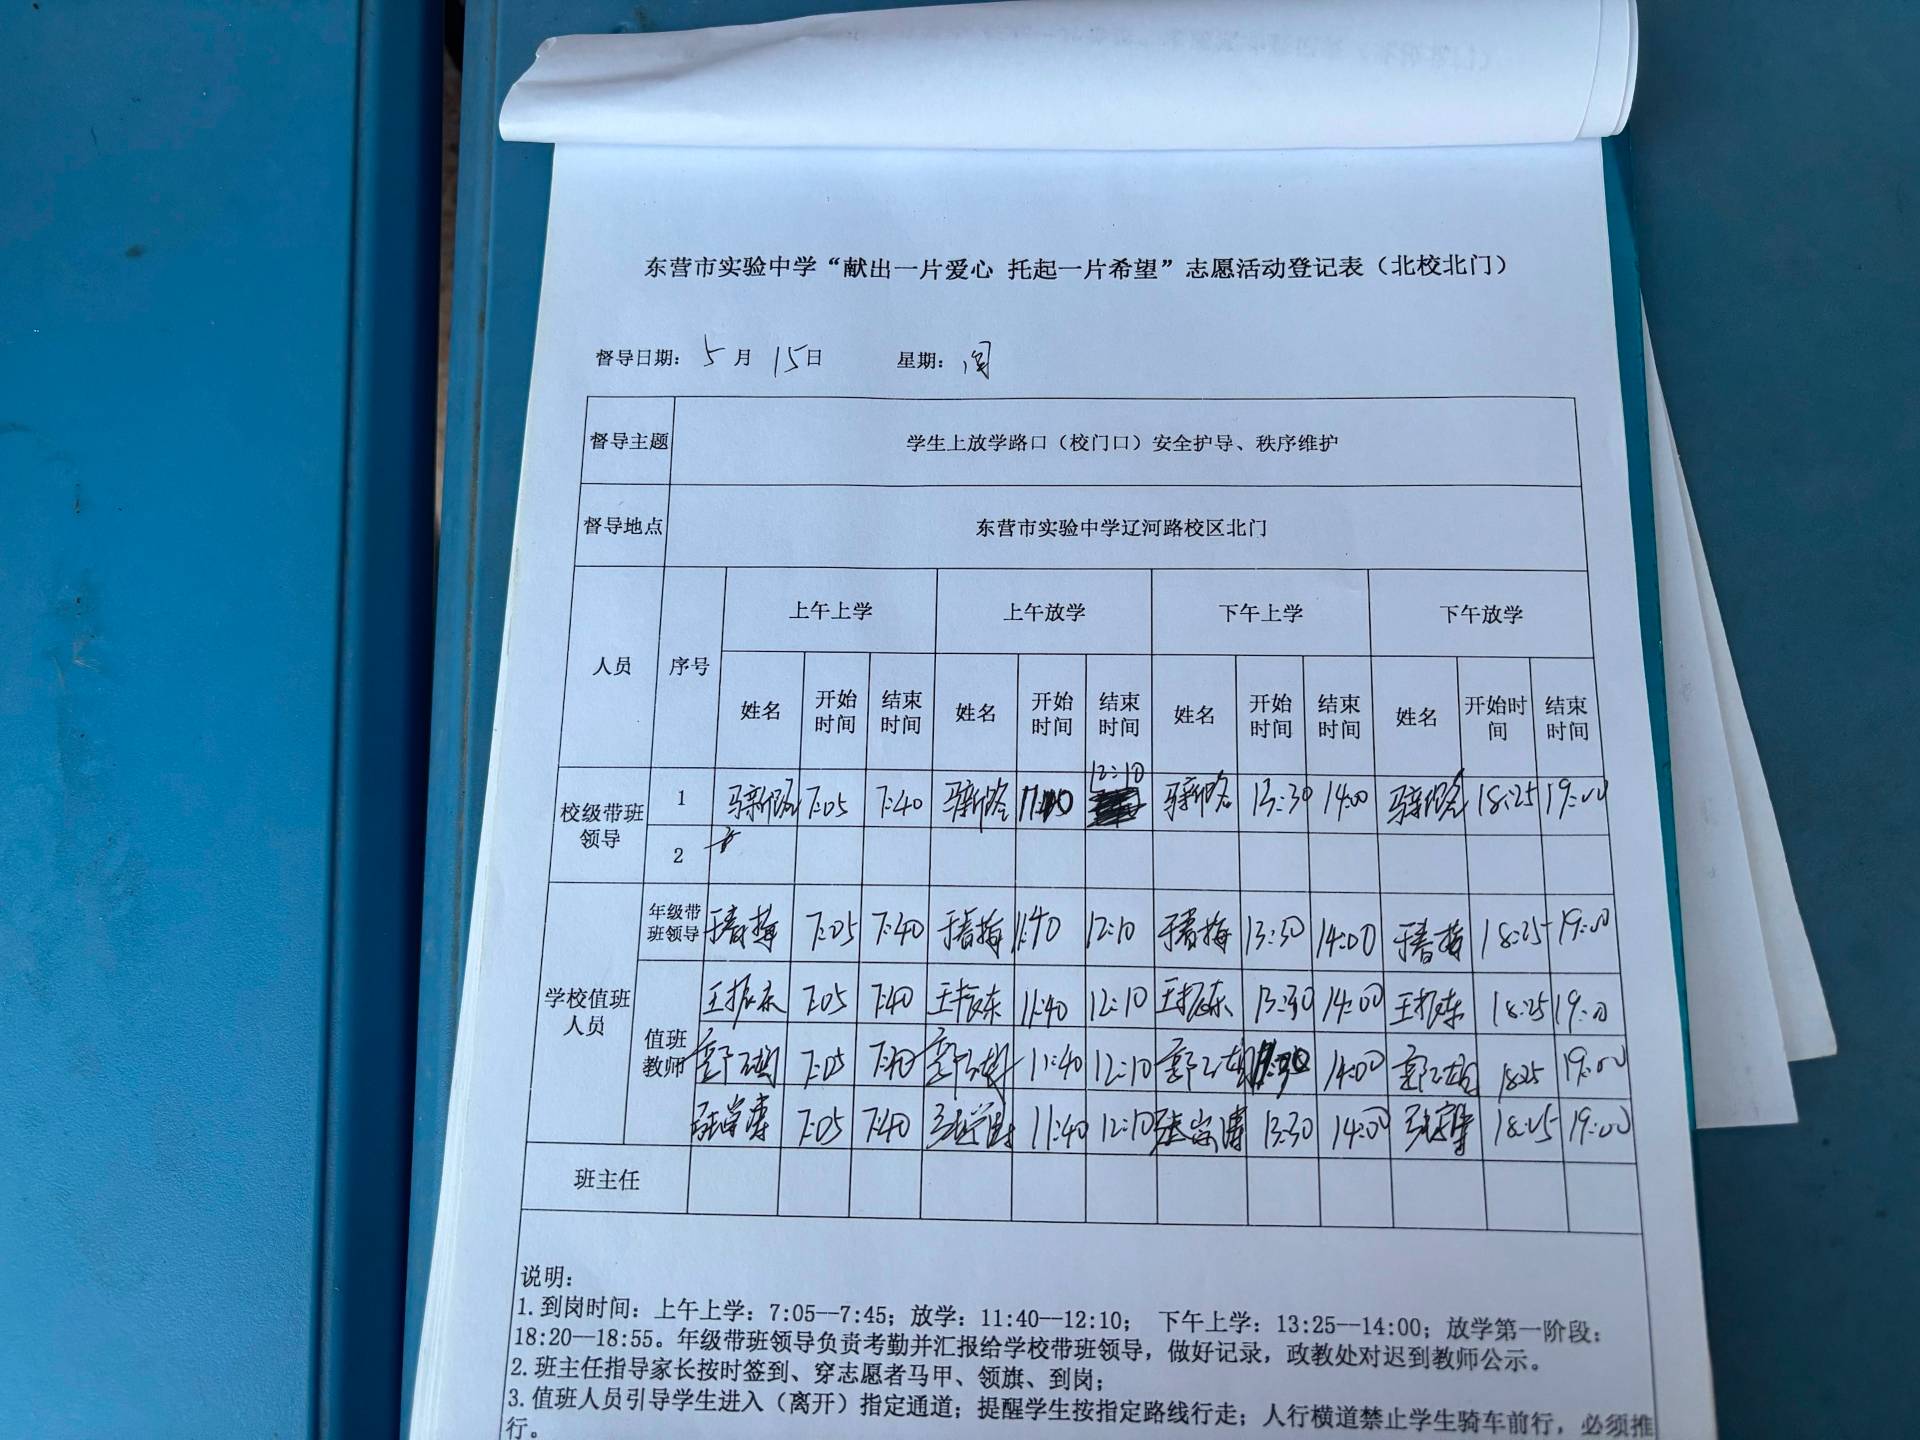 东营市实验中学“献出一片爱心 托起一片希望”志愿活动登记表（北校北门）
督导日期：5月15日 星期：
督导主题 学生上放学路口（校门口）安全护导、秩序维护
督导地点 东营市实验中学辽河路校区北门
人员 序号 上午上学 上午放学 下午上学 下午放学
姓名 开始时间 结束时间 姓名 开始时间 结束时间 姓名 开始时间 结束时间 姓名 开始时间 结束时间
校级带班领导 1 7:05 7:40 12:10 13:30 14:00 18:25 19:00
2
学校值班人员 年级带班领导 于春梅 7:05 7:40 于春梅 11:40 12:10 于春梅 13:30 14:00 于春梅 18:25 19:00
值班教师 王振东 7:05 7:40 王振东 11:40 12:10 王振东 13:30 14:00 王振东 18:25 19:00
7:05 7:40 11:40 12:10 14:00 18:25 19:00
7:05 7:40 11:40 12:10 13:30 14:00 18:25 19:00
班主任
说明：
1.到岗时间：上午上学：7:05--7:45；放学：11:40--12:10； 下午上学：13:25--14:00；放学第一阶段：
18:20--18:55。年级带班领导负责考勤并汇报给学校带班领导，做好记录，政教处对迟到教师公示。
2.班主任指导家长按时签到、穿志愿者马甲、领旗、到岗；
3.值班人员引导学生进入（离开）指定通道；提醒学生按指定路线行走；人行横道禁止学生骑车前行，必须推
行。